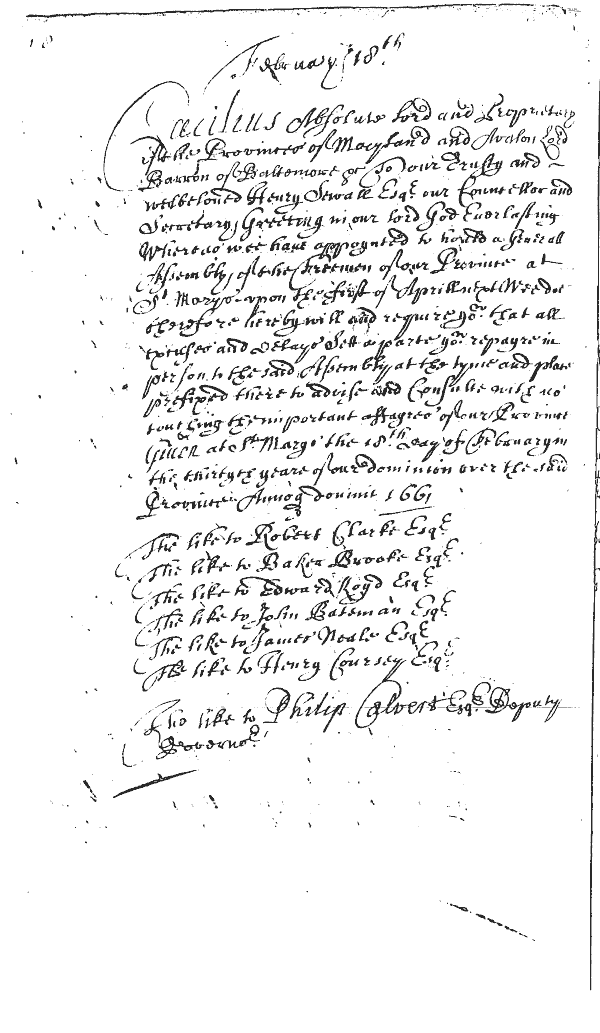 18
February 18th
Cæcilius Absolute Lord and Proprietary
of the Provinces of Maryland and Avalon Lord
Barron of Baltemore &c To our Trusty and
welbeloved Henry Sewall Esqr our Councellor and
Secretary Greeting in our lord God Everlasting
Whereas wee have appoynted to houlds a Generall
Assembly of the Freemen of our Province at
St Marys upon the first of Aprill next Wee doe
therefore hereby will and require yor that all
excuses and delays Sett aparte yor repayre in
person to the said Assembly at the tyme and place
prefixed there to advise and Consulte with us
touching the important affayres of our Province
Given at St Marys the 18th day of February in
the thirtyth yeare of our dominion over the said
Province Annoq domini 1661
The like to Robert Clarke Esqr
The like to Baker Brooke Esqr
The like to Edward Loyd Esqr
The like to John Bateman Esqr
The like to James Neale Esqr
The like to Henry Coursey Esqr
The like to Philip Calvert Esqr Deputy
Governor